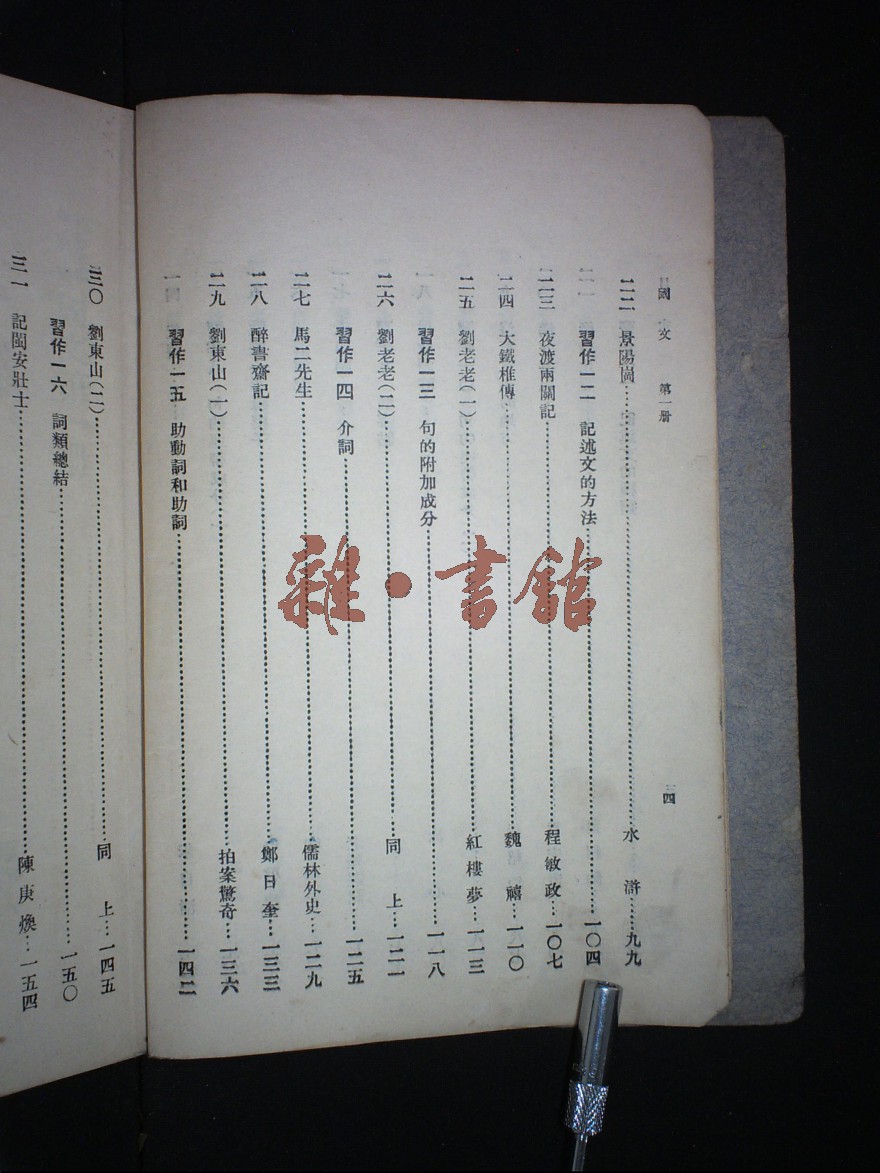 國文 第一册 四
二二 景陽崗……水滸……九九
習作一二 記述文的方法……一〇四
二三 夜渡兩關記……程敏政……一〇七
二四 大鐵椎傳……魏禧……一一〇
二五 劉老老(一)……紅樓夢……一一三
習作一三 句的附加成分……一一八
二六 劉老老(二)……同上……一二一
習作一四 介詞……一二五
二七 馬二先生……儒林外史……一二九
二八 醉書齋記……鄭日奎……一三三
二九 劉東山(一)……拍案驚奇……一三六
習作一五 助動詞和助詞……一四二
三〇 劉東山(二)……同上……一四五
習作一六 詞類總結……一五〇
三一 記閩安壯士……陳庚煥……一五四
雜·書館